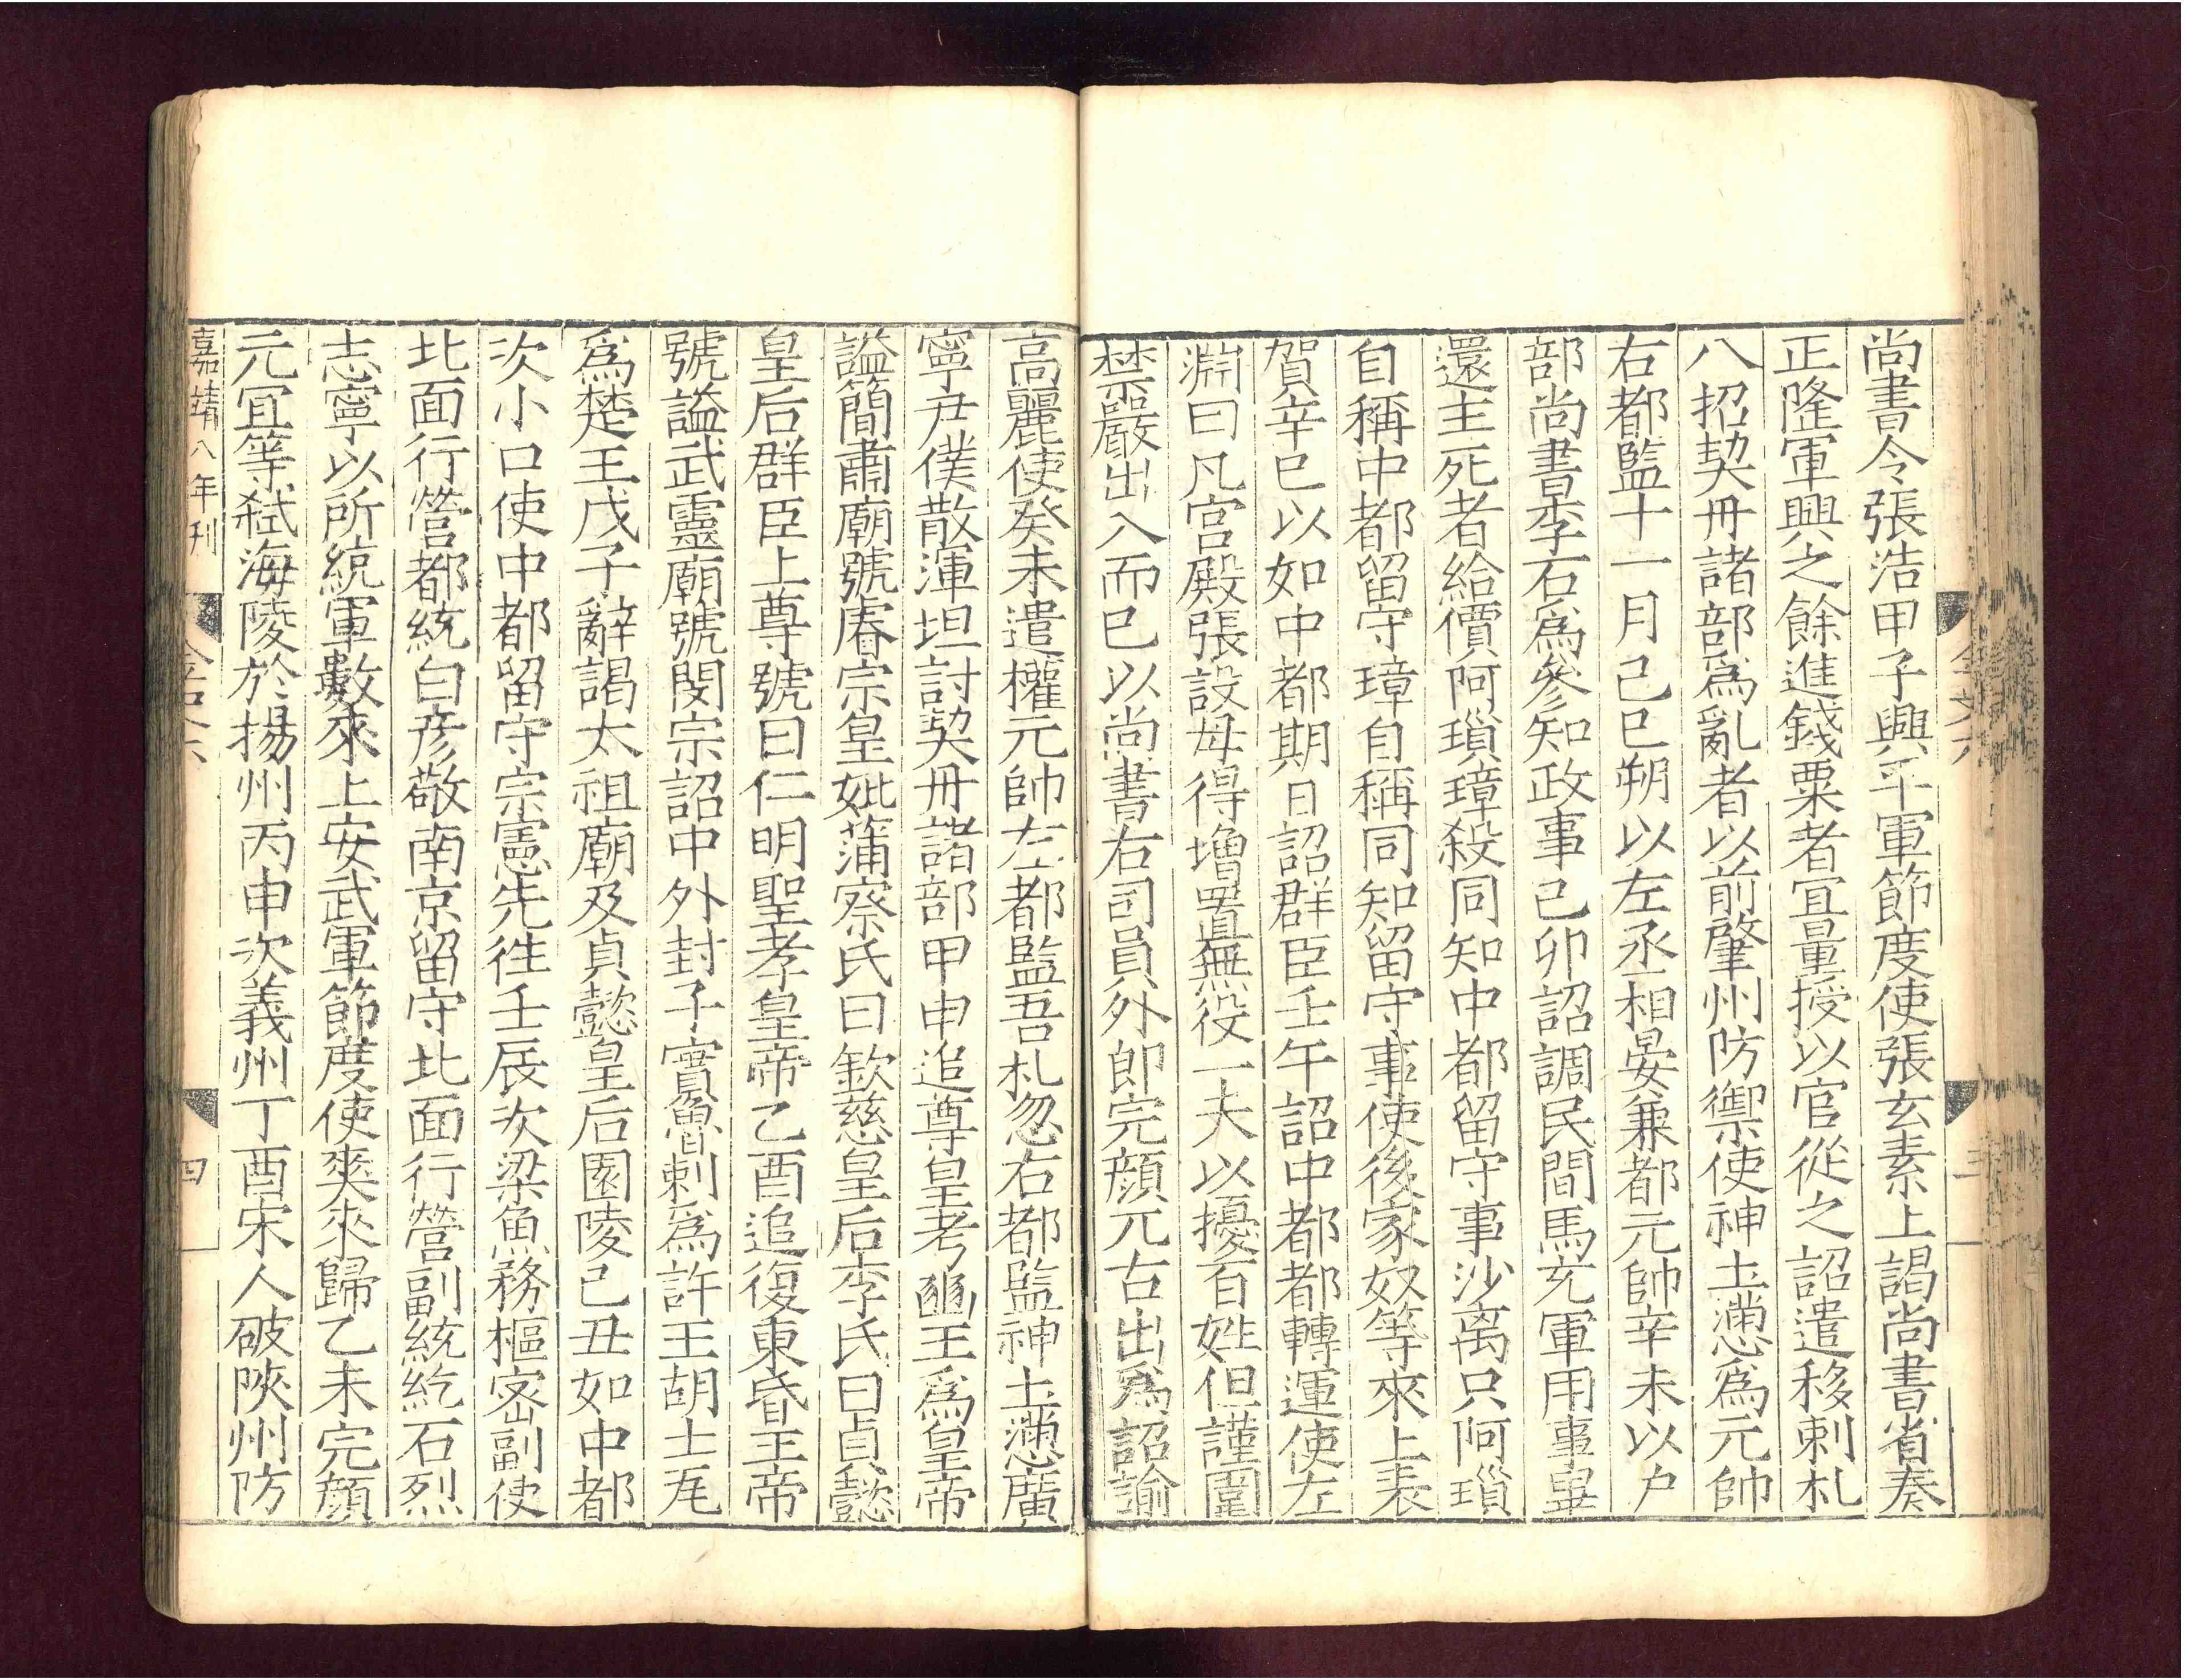 尚書令張浩甲子興平軍節度使張玄素上謁尚書省奏
正隆軍興之餘進錢粟者宜量授以官從之詔遣移剌札
八招契丹諸部爲亂者以前肇州防禦使神土懣爲元帥
右都監十一月己巳朔以左丞相晏兼都元帥辛未以户
部尚書李石爲參知政事己卯詔調民間馬充軍用事畢
還主死者給價阿瑣璋殺同知中都留守事沙离只阿瑣
自稱中都留守璋自稱同知留守事使後家奴等來上表
賀辛巳以如中都期日詔群臣壬午詔中都都轉運使左
淵曰凡宮殿張設毋得增置無役一夫以擾百姓但謹圍
禁嚴出入而已以尚書右司員外郎完顔兀古出爲詔諭
高麗使癸未遣權元帥左都監吾札忽右都監神土懣廣
寧尹僕散渾坦討契丹諸部甲申追尊皇考豳王爲皇帝
謚簡肅廟號睿宗皇妣蒲察氏曰欽慈皇后李氏曰貞懿
皇后群臣上尊號曰仁明聖孝皇帝乙酉追復東昏王帝
號謚武靈廟號閔宗詔中外封子實魯剌爲許王胡土瓦
爲楚王戊子辭謁太祖廟及貞懿皇后園陵己丑如中都
次小口使中都留守宗憲先徃壬辰次梁魚務樞密副使
北面行營都統白彦敬南京留守北面行營副統紇石烈
志寧以所統軍數來上安武軍節度使爽來歸乙未完顔
元宜等弒海陵於揚州丙申次義州丁酉宋人破陜州防
嘉靖八年刊
金史六
四
金史六
三